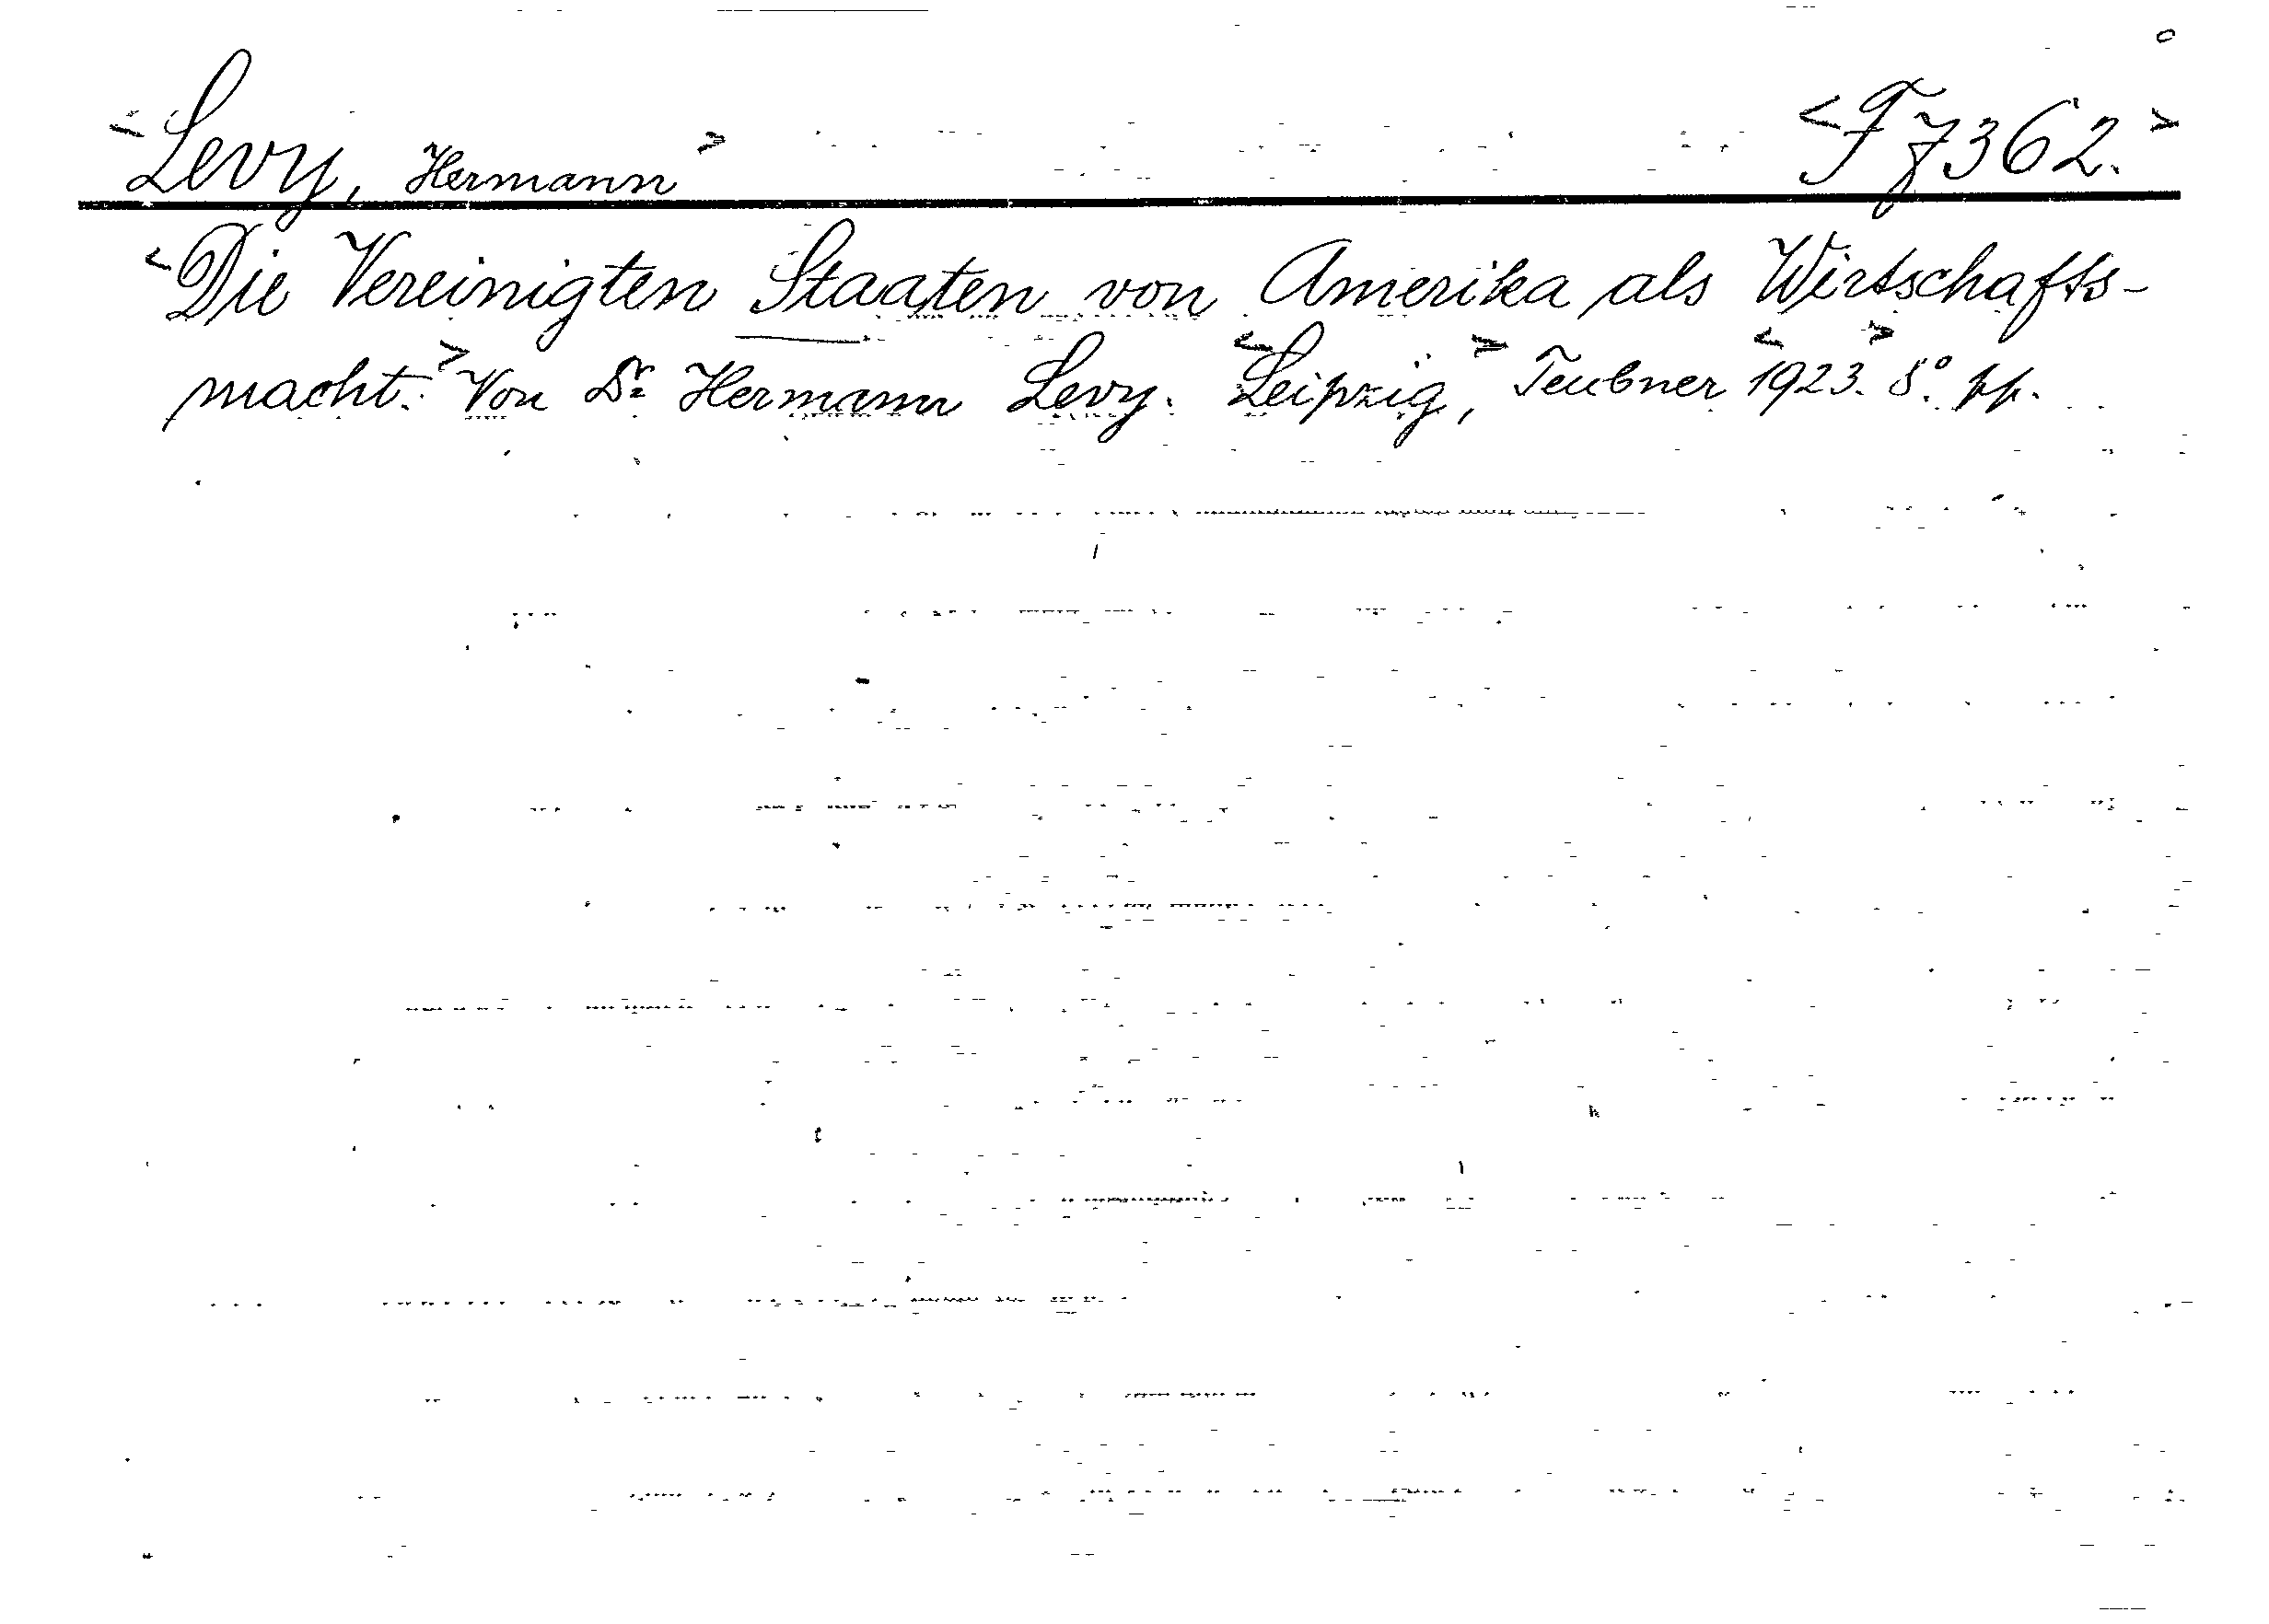 <Levy, Hermann> <F 7362.>
<Die Vereinigten Staaten von Amerika als Wirtschafts-
macht.> Von Dr Hermann Levy. <Leipzig,> Teubner <1923.> 8°. pp.